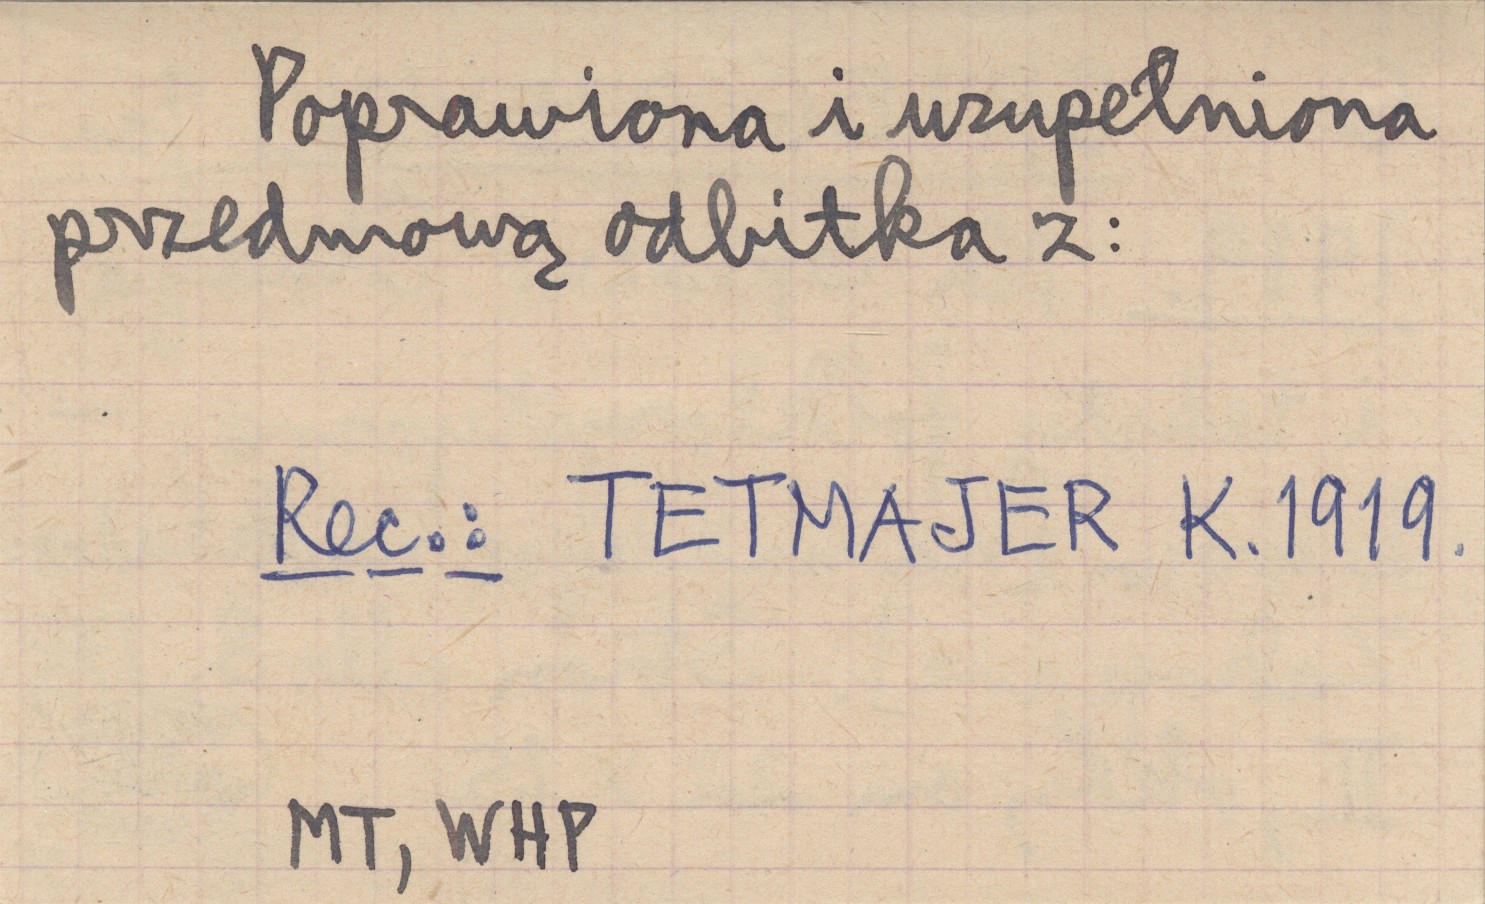 Poprawiona i uzupełniona
przedmową odbitka z:
Rec.: TETMAJER K. 1919.
MT, WHP